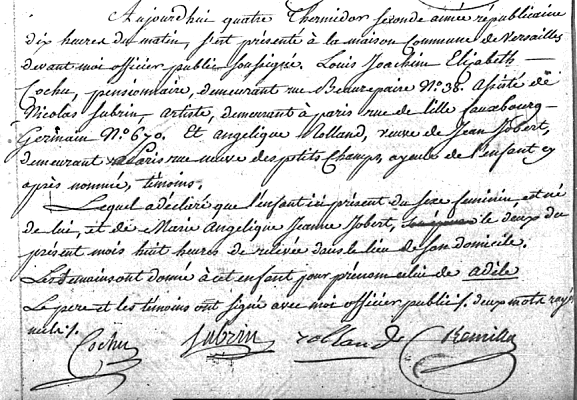 Aujourdhui quatre Thermidor seconde année républicaine
dix heures du matin, s'est présenté à la maison Commune de Versailles
devant moi officier public soussigné, Louis Joachim Elizabeth
Cochu, pensionnaire, demeurant rue Beaurepaire N.º 38. Assisté de
Nicolas Subrin, artiste, demeurant à paris rue de lille fauxbourg
Germain N.º 670. Et angelique Rolland, veuve de Jean Jobert,
demeurant à Paris rue neuve des petits Champs, ayeule de l'enfant cy
après nommée, témoins.
Lequel a déclaré que l'enfant ici présent du sexe feminin, est né
de lui, et de Marie Angelique Jeanne Jobert, le deux du
présent mois huit heures de relevée dans le lieu de son domicile.
Les témoins ont donné à cet enfant pour prénom celui de adèle
Le pere et les témoins ont signé avec moi officier public /. deux mots rayés
nuls /.
Cochu Subrin rolland Remilly